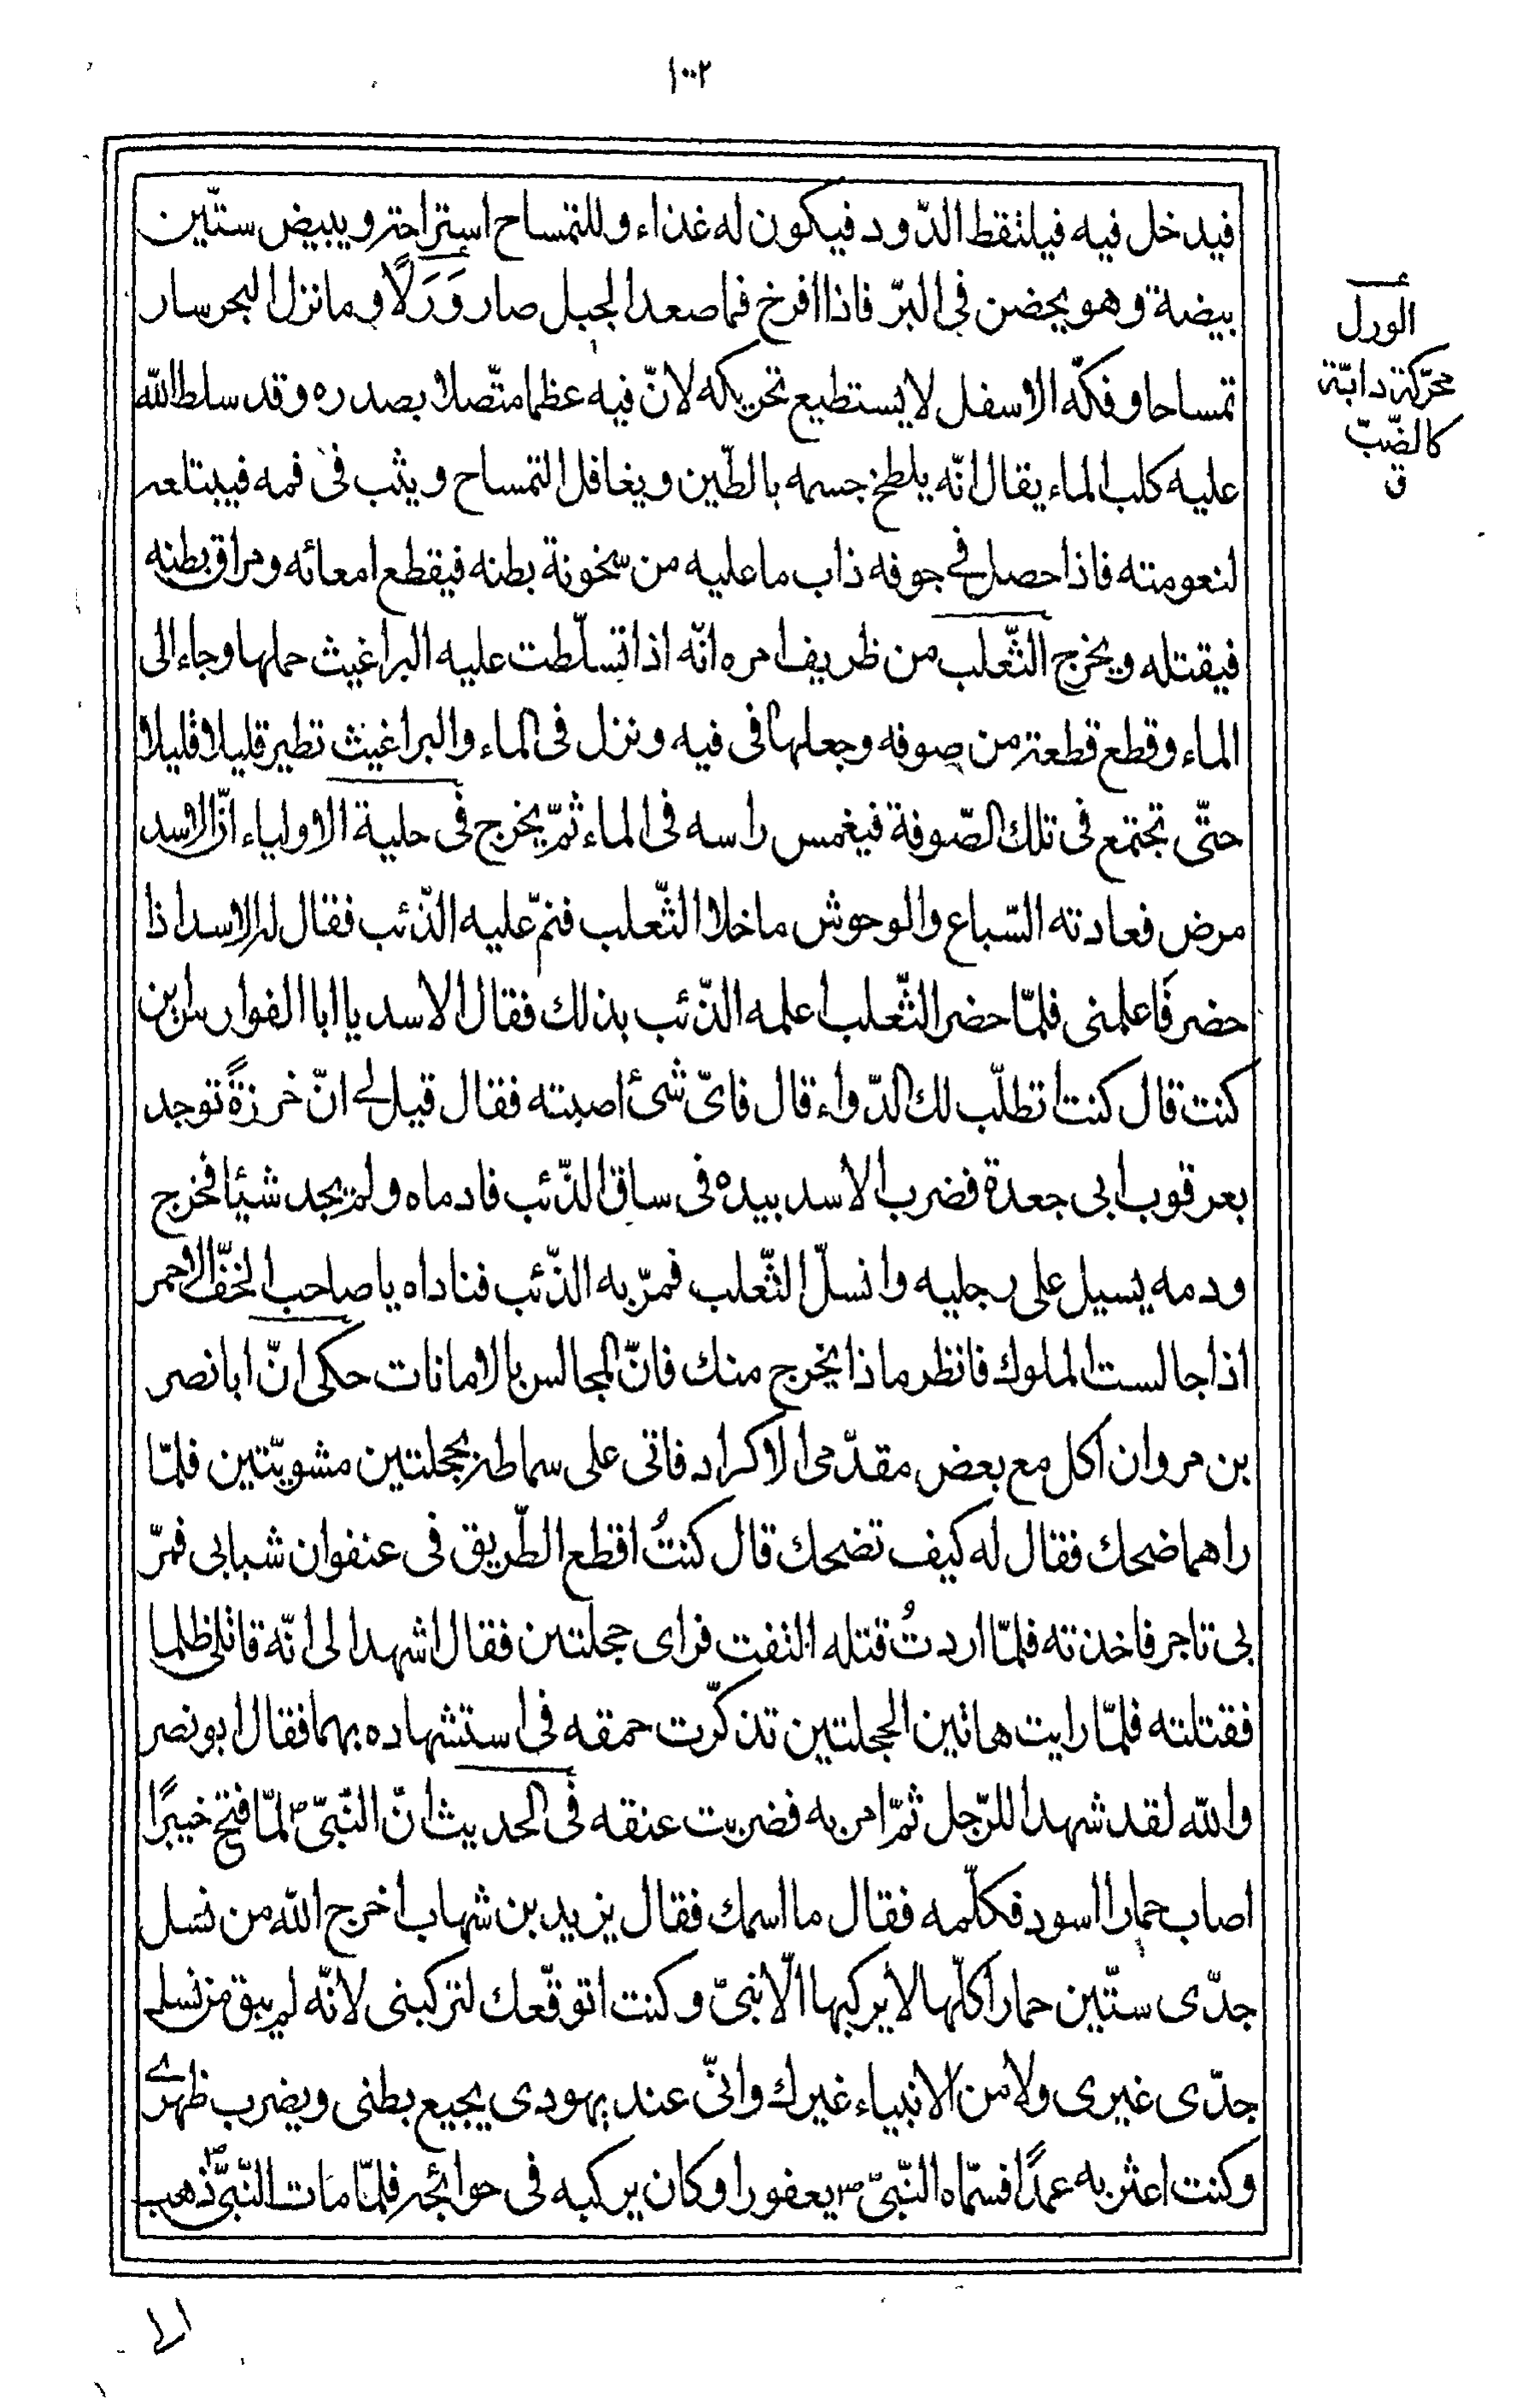 ١٠٠٢
فيدخل فيه فيلتقط الدّود فيكون له غذاء وللتمساح استراحة ويبيض ستّين
بيضة وهو يحضن في البرّ فاذا افرخ فما صعد الجبل صار وَرَلًا وما نزل البحر سار
تمساحا وفكّه الاسفل لا يستطيع تحريكه لانّ فيه عظما متّصلا بصدره وقد سلط الله
عليه كلب الماء يقال انّه يلطخ جسمه بالطّين ويغافل التمساح ويثب فى فمه فيبتلعه
لنعومته فاذا حصل في جوفه ذاب ما عليه من سخونة بطنه فيقطع امعائه ومراق بطنه
فيقتله ويخرج الثّعلب من ظريف امره انّه اذا تسلّطت عليه البراغيث حملها وجاء الى
الماء وقطع قطعة من صوفه وجعلها فى فيه ونزل فى الماء والبراغيث تطير قليلا قليلا
حتّى تجتمع فى تلك الصّوفة فيغمس راسه فى الماء ثمّ يخرج فى حلية الاولياء انّ الاسد
مرض فعادته السّباع والوحوش ما خلا الثّعلب فنمّ عليه الذّئب فقال له الاسد اذا
حضر فَاعلمنى فلمّا حضر الثّعلب اعلمه الذّئب بذلك فقال الاسد يا ابا الفوارس اين
كنت قال كنت اتطلّب لك الدّواء قال فاىّ شئ اصبته فقال قيل لى انّ خرزةً توجد
بعرقوب ابى جعدة فضرب الاسد بيده فى ساق الذّئب فادماه ولم يجد شيئا فخرج
ودمه يسيل على رجليه وانسلّ الثّعلب فمرّ به الذّئب فناداه يا صاحب الخفّ الاحمر
اذا جالست الملوك فانظر ماذا يخرج منك فانّ المجالس بالامانات حكى انّ ابا نصر
بن مروان اكل مع بعض مقدّمى الاكراد فاتى على سماطه بحجلتين مشويّتين فلمّا
راهما ضحك فقال له كيف تضحك قال كنتُ اقطع الطّريق فى عنفوان شبابى فمرّ
بى تاجر فاخذته فلمّا اردتُ قتله التفت فراى حجلتين فقال اشهدا لى انّه قاتلى ظلما
فقتلته فلمّا رايت هاتين الحجلتين تذكّرت حمقه فى استشهاده بهما فقال ابو نصر
والله لقد شهدا للرّجل ثمّ امر به فضربت عنقه فى الحديث انّ النّبىّ ص لمّا فتح خيبرًا
اصاب حمارا اسود فكلّمه فقال ما اسمك فقال يزيد بن شهاب اخرج الله من نسل
جدّى ستّين حمارا كلّها لا يركبها الّا نبىّ وكنت اتوقّعك لتركبنى لانّه لم يبق من نسل
جدّى غيرى ولا من الانبياء غيرك وانّى عند يهودى يجيع بطنى ويضرب ظهرى
وكنت اعثر به عمدًا فسمّاه النّبىّ ص يعفورا وكان يركبه فى حوائجه فلمّا مات النّبىّ ص ذهب
الورل
محرّكة دابّة
كالضّبّ
ق